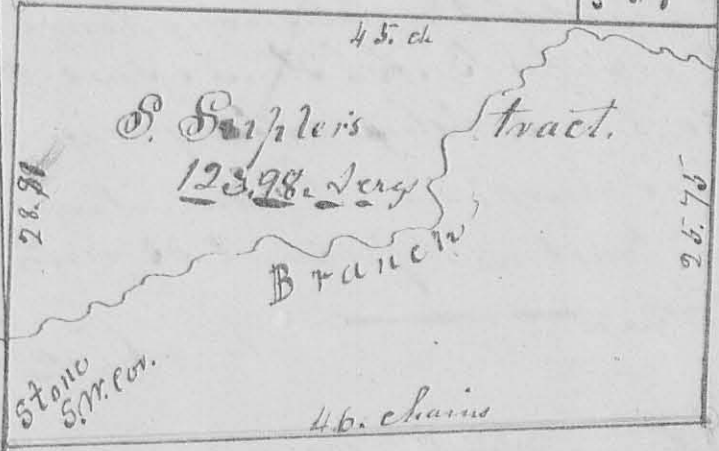 45. ch
S. tract.
123.98. Acrs
28.80
25.75
Branch
Stone
S.W. Cor.
46. chains